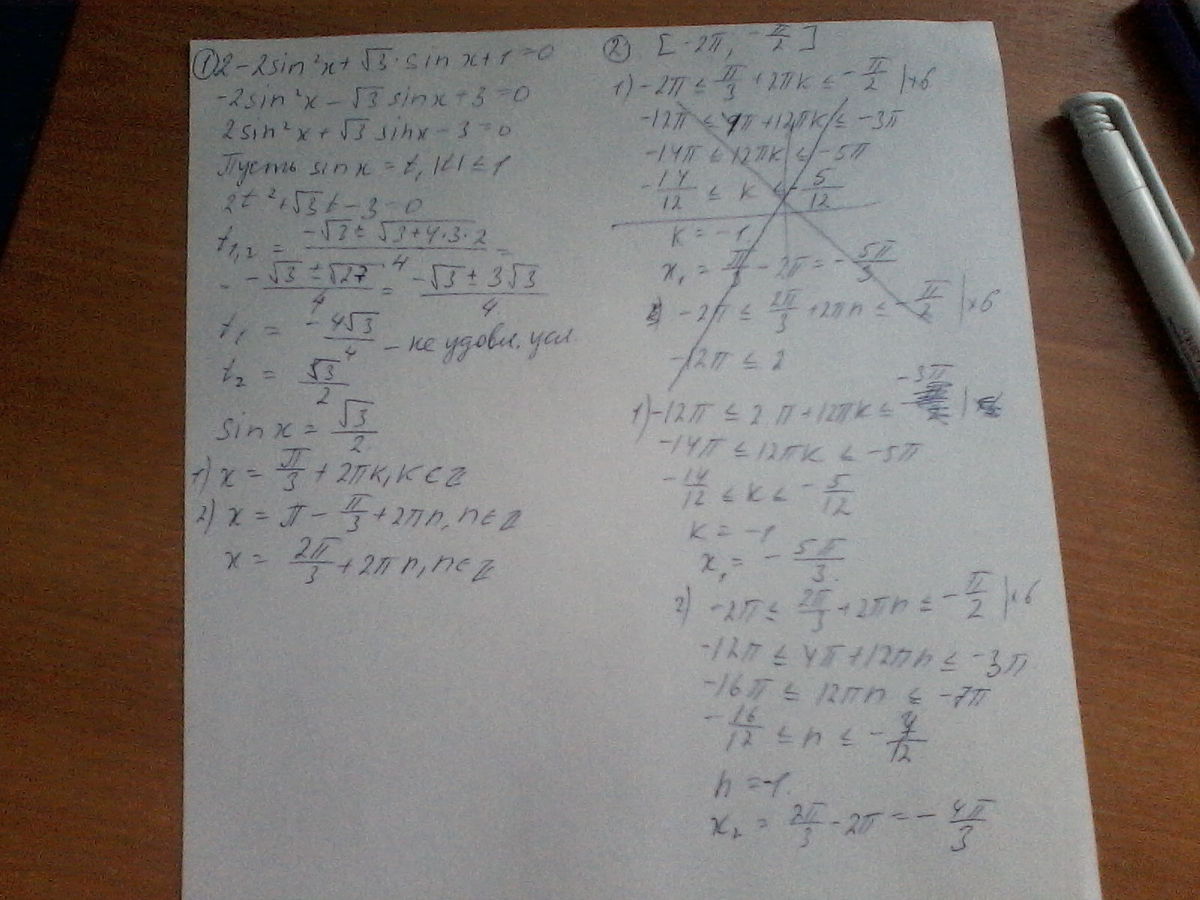 ① 2 - 2sin²x + √3 · sin x + 1 = 0
-2sin²x - √3 sinx + 3 = 0
2sin²x + √3 sinx - 3 = 0
Пусть sin x = t, |t| ≤ 1
2t² + √3 t - 3 = 0
t₁,₂ = (-√3 ± √(3+4·3·2))/4 =
= (-√3 ± √27)/4 = (-√3 ± 3√3)/4
t₁ = -4√3/4 - не удовл. усл.
t₂ = √3/2
sin x = √3/2
1) x = π/3 + 2πk, k ∈ Z
2) x = π - π/3 + 2πn, n ∈ Z
x = 2π/3 + 2πn, n ∈ Z
② [-2π, -π/2]
1) -2π ≤ π/3 + 2πk ≤ -π/2 |×6
-12π ≤ π + 12πk ≤ -3π
-14π ≤ 12πk ≤ -5π
-14/12 ≤ k ≤ -5/12
k = -1
x₁ = π/3 - 2π = -5π/3
2) -2π ≤ 2π/3 + 2πn ≤ -π/2 |×6
-12π ≤ 2
1) -12π ≤ 2π + 12πk ≤ -3π
-14π ≤ 12πk ≤ -5π
-14/12 ≤ k ≤ -5/12
k = -1
x₁ = -5π/3
2) -2π ≤ 2π/3 + 2πn ≤ -π/2 |×6
-12π ≤ 4π + 12πn ≤ -3π
-16π ≤ 12πn ≤ -7π
-16/12 ≤ n ≤ -7/12
n = -1.
x₂ = 2π/3 - 2π = -4π/3